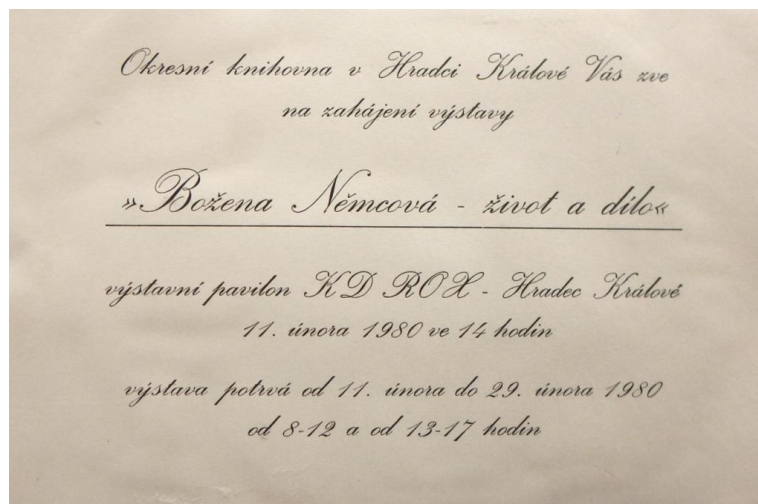 Okresní knihovna v Hradci Králové Vás zve
na zahájení výstavy
»Božena Němcová - život a dílo«
výstavní pavilon KD ROH - Hradec Králové
11. února 1980 ve 14 hodin
výstava potrvá od 11. února do 29. února 1980
od 8-12 a od 13-17 hodin